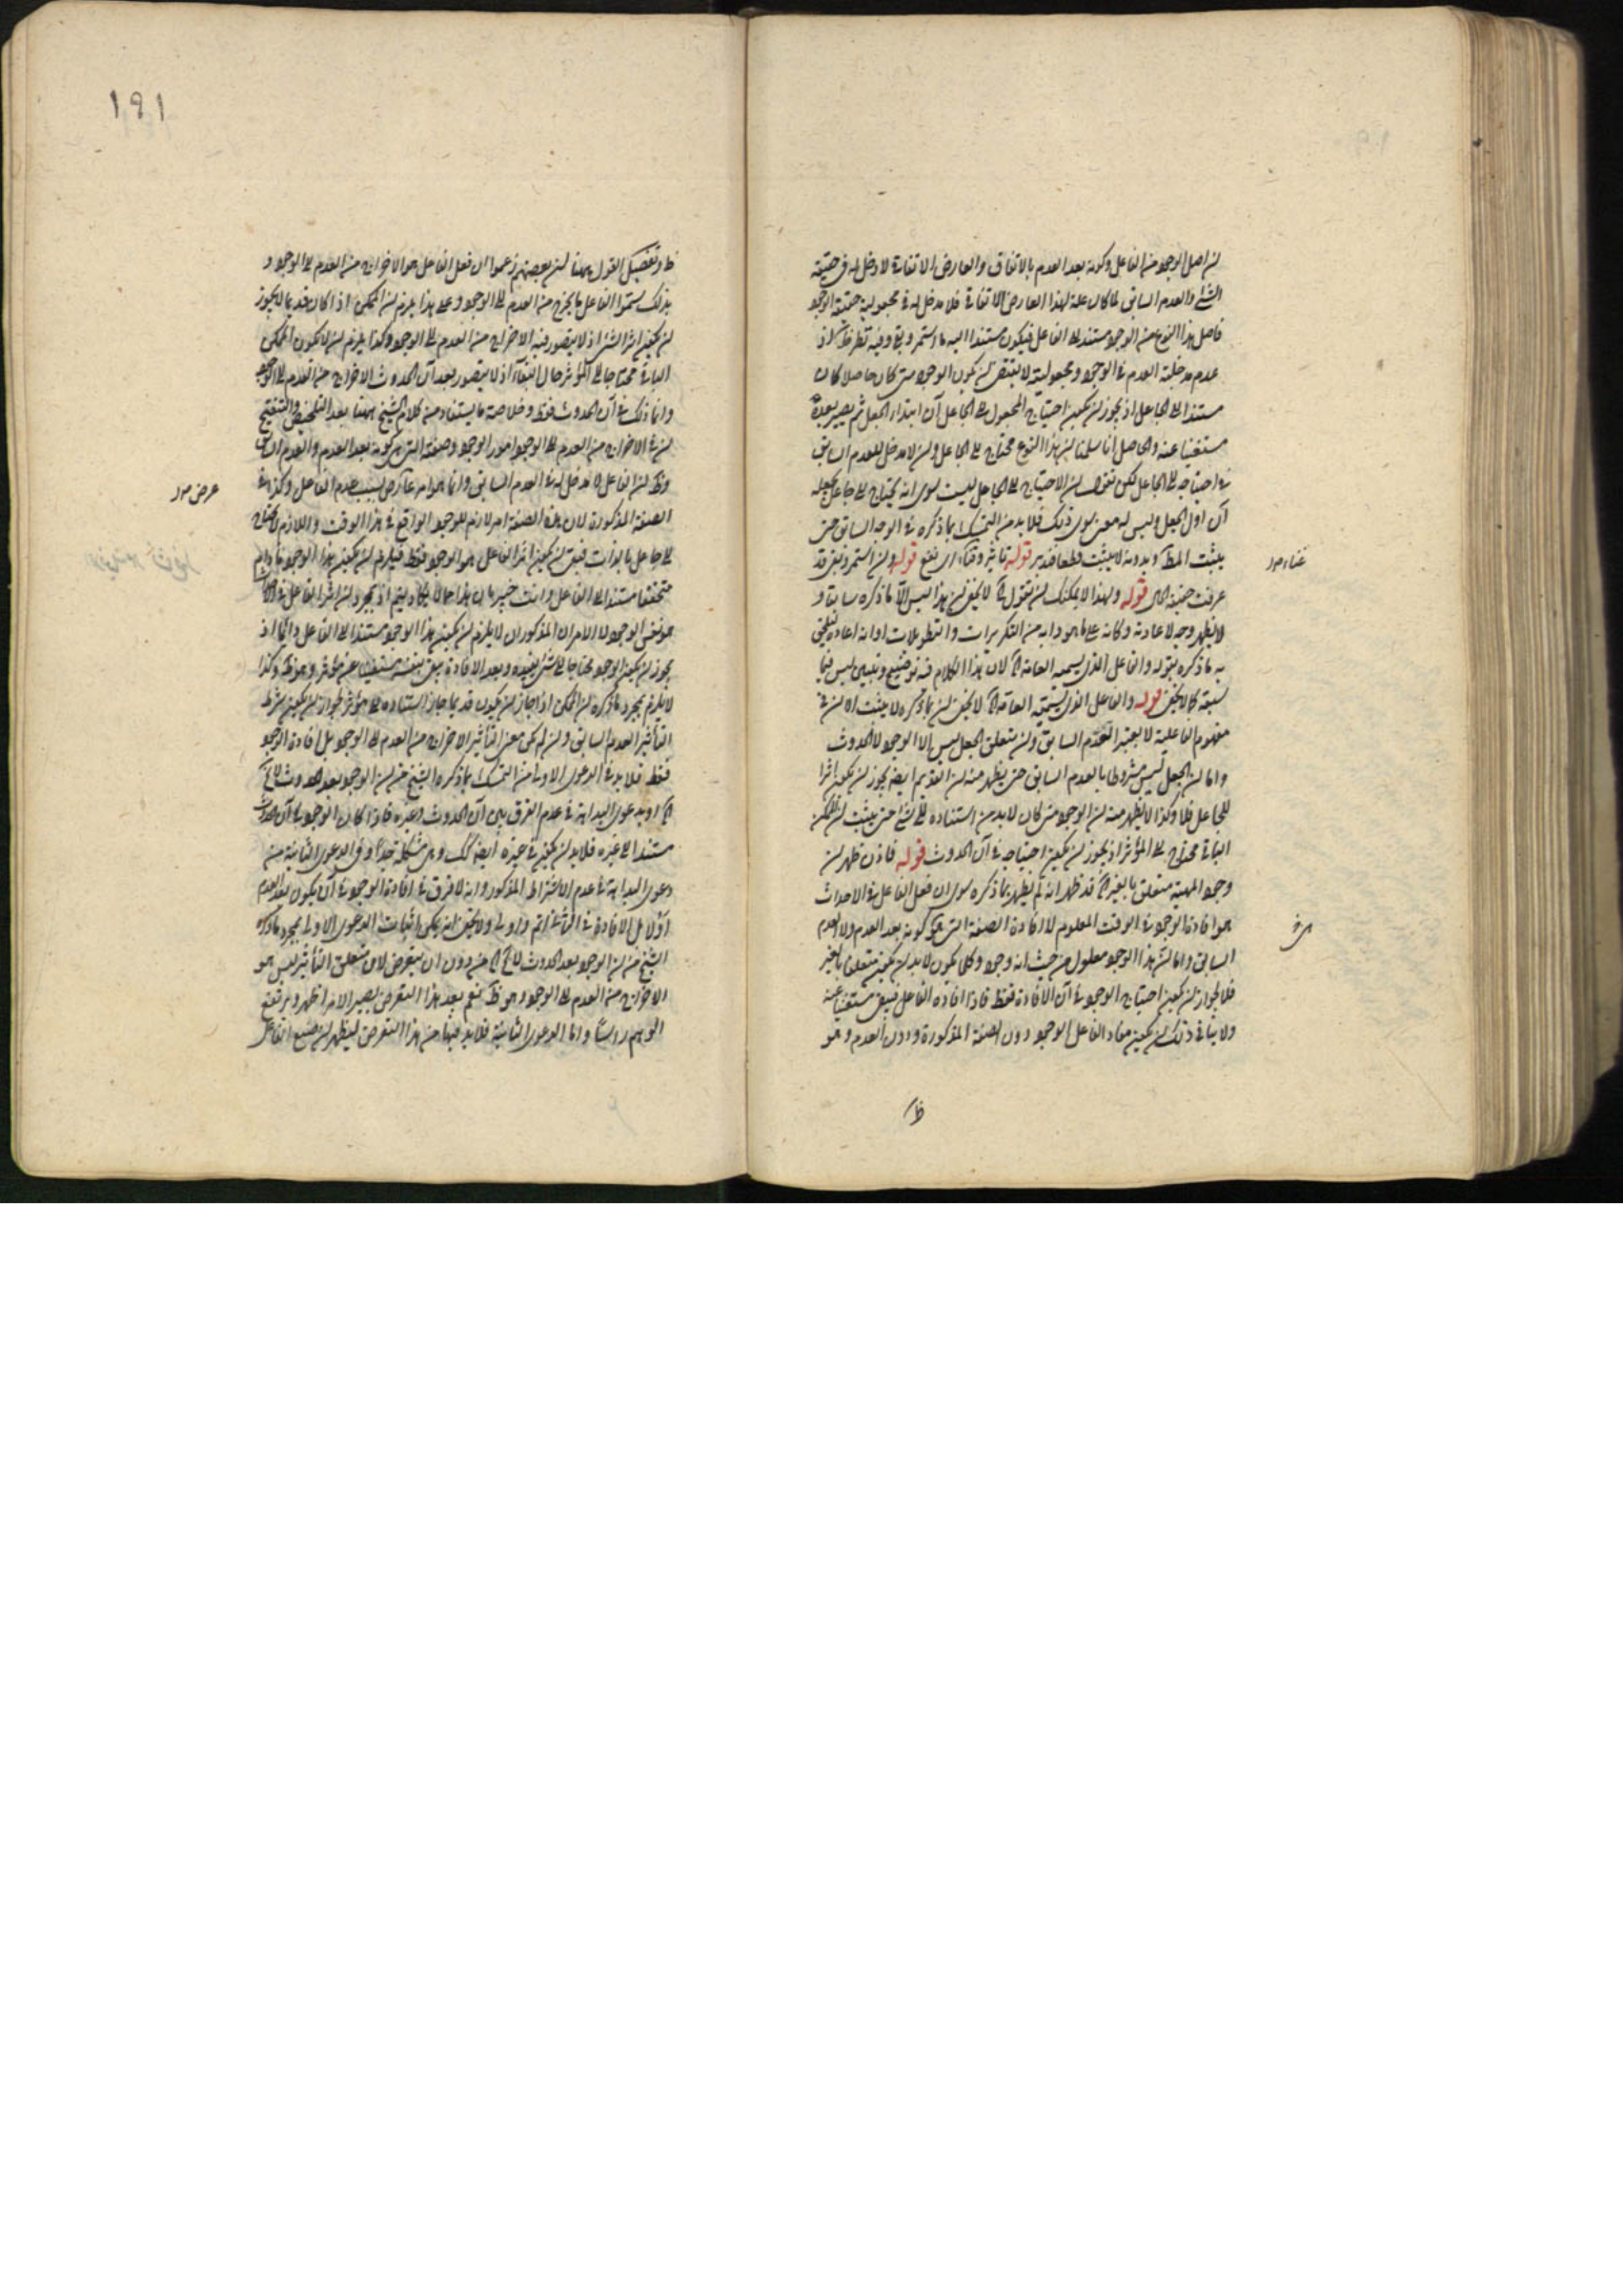 لان اصل الوجود من الفاعل وكونه بعد العدم بالاتفاق والعارض الاتفاقي لا دخل له في حقيقة
الشئ والعدم السابق لما كان علة لهذا العارض الاتفاقي فلا مدخل له في مجعولية حقيقة الوجود
فاصل هذا النوع من الوجود مستند الى الفاعل فيكون مستندا اليه ما استمر وبقى وفيه نظر ظ اذ
عدم مدخلية العدم في الوجود ومجعوليته لا يقتضى ان يكون الوجود متى كان حاصلا كان
مستندا الى الجاعل اذ يجوز ان يكون احتياج المجعول الى الجاعل آن ابتداء الجعل ثم يصير بعده
مستغنيا عنه والحاصل انا سلمنا ان هذا النوع محتاج الى الجاعل وان لا مدخل للعدم السابق
في احتياجه الى الجاعل لكن نقول ان الاحتياج الى الجاعل ليست سوى انه يحتاج الى جاعل يجعله
آن اول الجعل وليس له معنى سوى ذلك فلا بد من التمسك بما ذكره في الوجه السابق حتى
يثبت المط وبدونه لا يثبت قطعا فتدبر قوله تأثير وقتاء اى نفع قوله وان استمر وبقى قد
عرفت حقيقة الحال قوله ولهذا لا يمكنك ان تقول الخ لا يخفى ان هذا ليس الا ما ذكره سابقا و
لا يظهر وجه لاعادته وكانه على ما هو دابه من التكريرات والتطويلات او انه اعاده ليلحق
به ما ذكره بقوله والفاعل الذى يسميه العامة الخ لان هذا الكلام فيه توضيح وتبيين ليس فيما
سبقه كما لا يخفى قوله والفاعل الذى يسميه العامة الخ لا يخفى ان بما ذكره لا يثبت الا ان في
مفهوم الفاعلية لا يعتبر العدم السابق وان متعلق الجعل ليس الا الوجود لا الحدوث
واما ان الجعل ليس مشروطا بالعدم السابق حتى يظهر منه ان القديم ايضا يجوز ان يكون اثرا
للجاعل فلا وكذا لا يظهر منه ان الوجود متى كان لا بد من استناده الى شئ حتى يثبت ان الممكن
الباقى محتاج الى المؤثر اذ يجوز ان يكون احتياجه في آن الحدوث قوله فاذن ظهر ان
وجود المهية متعلق بالغير الخ قد ظهر انه لم يظهر بما ذكره سوى ان فعل الفاعل في الاحداث
هو افادة الوجود في الوقت المعلوم لا افادة الصفة التى هى كونه بعد العدم ولا العدم
السابق واما ان هذا الوجود معلول من حيث انه وجود وكلما يكون لا بد ان يكون متعلقا بالغير
فلا لجواز ان يكون احتياج الوجود في آن الافادة فقط فاذا افاده الفاعل فيبقى مستغنيا عنه
ولا ينافى ذلك ان يكون مفاد الفاعل الوجود دون الصفة المذكورة ودون العدم وهو
ظ
١٩١
ظ وتفصيل القول ههنا ان بعضهم زعموا ان فعل الفاعل هو الاخراج من العدم الى الوجود و
بذلك سموا الفاعل ما يخرج من العدم الى الوجود وعلى هذا يلزم ان الممكن اذا كان قديما لا يجوز
ان يكون اثرا لشئ اذ لا يتصور فيه الاخراج من العدم الى الوجود وكذا يلزم ان لا يكون الممكن
الباقى محتاجا الى المؤثر حال البقاء اذ لا يتصور بعد آن الحدوث الاخراج من العدم الى الوجود
وانما ذلك في آن الحدوث فقط وخلاصة ما يستفاد من كلام الشيخ ههنا بعد التلخيص والتنقيح
ان في الاخراج من العدم الى الوجود امور الوجود وصفته التى هى كونه بعد العدم والعدم السابق
وظ ان الفاعل لا مدخل له في العدم السابق وانما هو امر عارض بسبب عدم الفاعل وكذا في
الصفة المذكورة لان هذه الصفة امر لازم للوجود الواقع في هذا الوقت واللازم لا يحتاج
الى جاعل بالذات فبقى ان يكون اثر الفاعل هو الوجود فقط فيلزم ان يكون هذا الوجود ما دام
متحققا مستندا الى الفاعل وانت خبير بان هذا مما لا يكاد يتم اذ بمجرد ان اثر الفاعل في الحال
هو نفس الوجود لا الامران المذكوران لا يلزم ان يكون هذا الوجود مستندا الى الفاعل دائما اذ
يجوز ان يكون الوجود محتاجا الى شئ يفيده وبعد الافادة يبقى بنفسه مستغنيا عن مؤثر وهو ظ وكذا
لا يلزم بمجرد ما ذكره ان الممكن اذا جاز ان يكون قديما جاز استناده الى مؤثر لجواز ان يكون شرط
التأثير العدم السابق وان لم يكن معنى التأثير الاخراج من العدم الى الوجود بل افادة الوجود
فقط فلا بد في الدعوى الاولى من التمسك بما ذكره الشيخ من ان الوجود بعد الحدوث لا يخ
الخ او بدعوى البداهة في عدم الفرق بين آن الحدوث وغيره فاذا كان الوجود في آن الحدوث
مستندا الى غيره فلا بد ان يكون في غيره ايضا كك وهى مشكلة جدا وفى الدعوى الثانية من
دعوى البداهة في عدم الاشتراط المذكور وانه لا فرق في افادة الوجود في آن يكون بعد العدم
او لا بل الافادة في الثانى اتم واولى ولا يخفى انه يمكن اثبات الدعوى الاولى بمجرد ما ذكره
الشيخ من ان الوجود بعد الحدوث لا يخ الخ من دون ان يتعرض لان متعلق التأثير ليس هو
الاخراج من العدم الى الوجود وهو ظ نعم بعد هذا التعرض يصير الامر اظهر ويرتفع
الوهم راسا واما الدعوى الثانية فلا بد فيها من هذا التعرض ليظهر ان صنع الفاعل